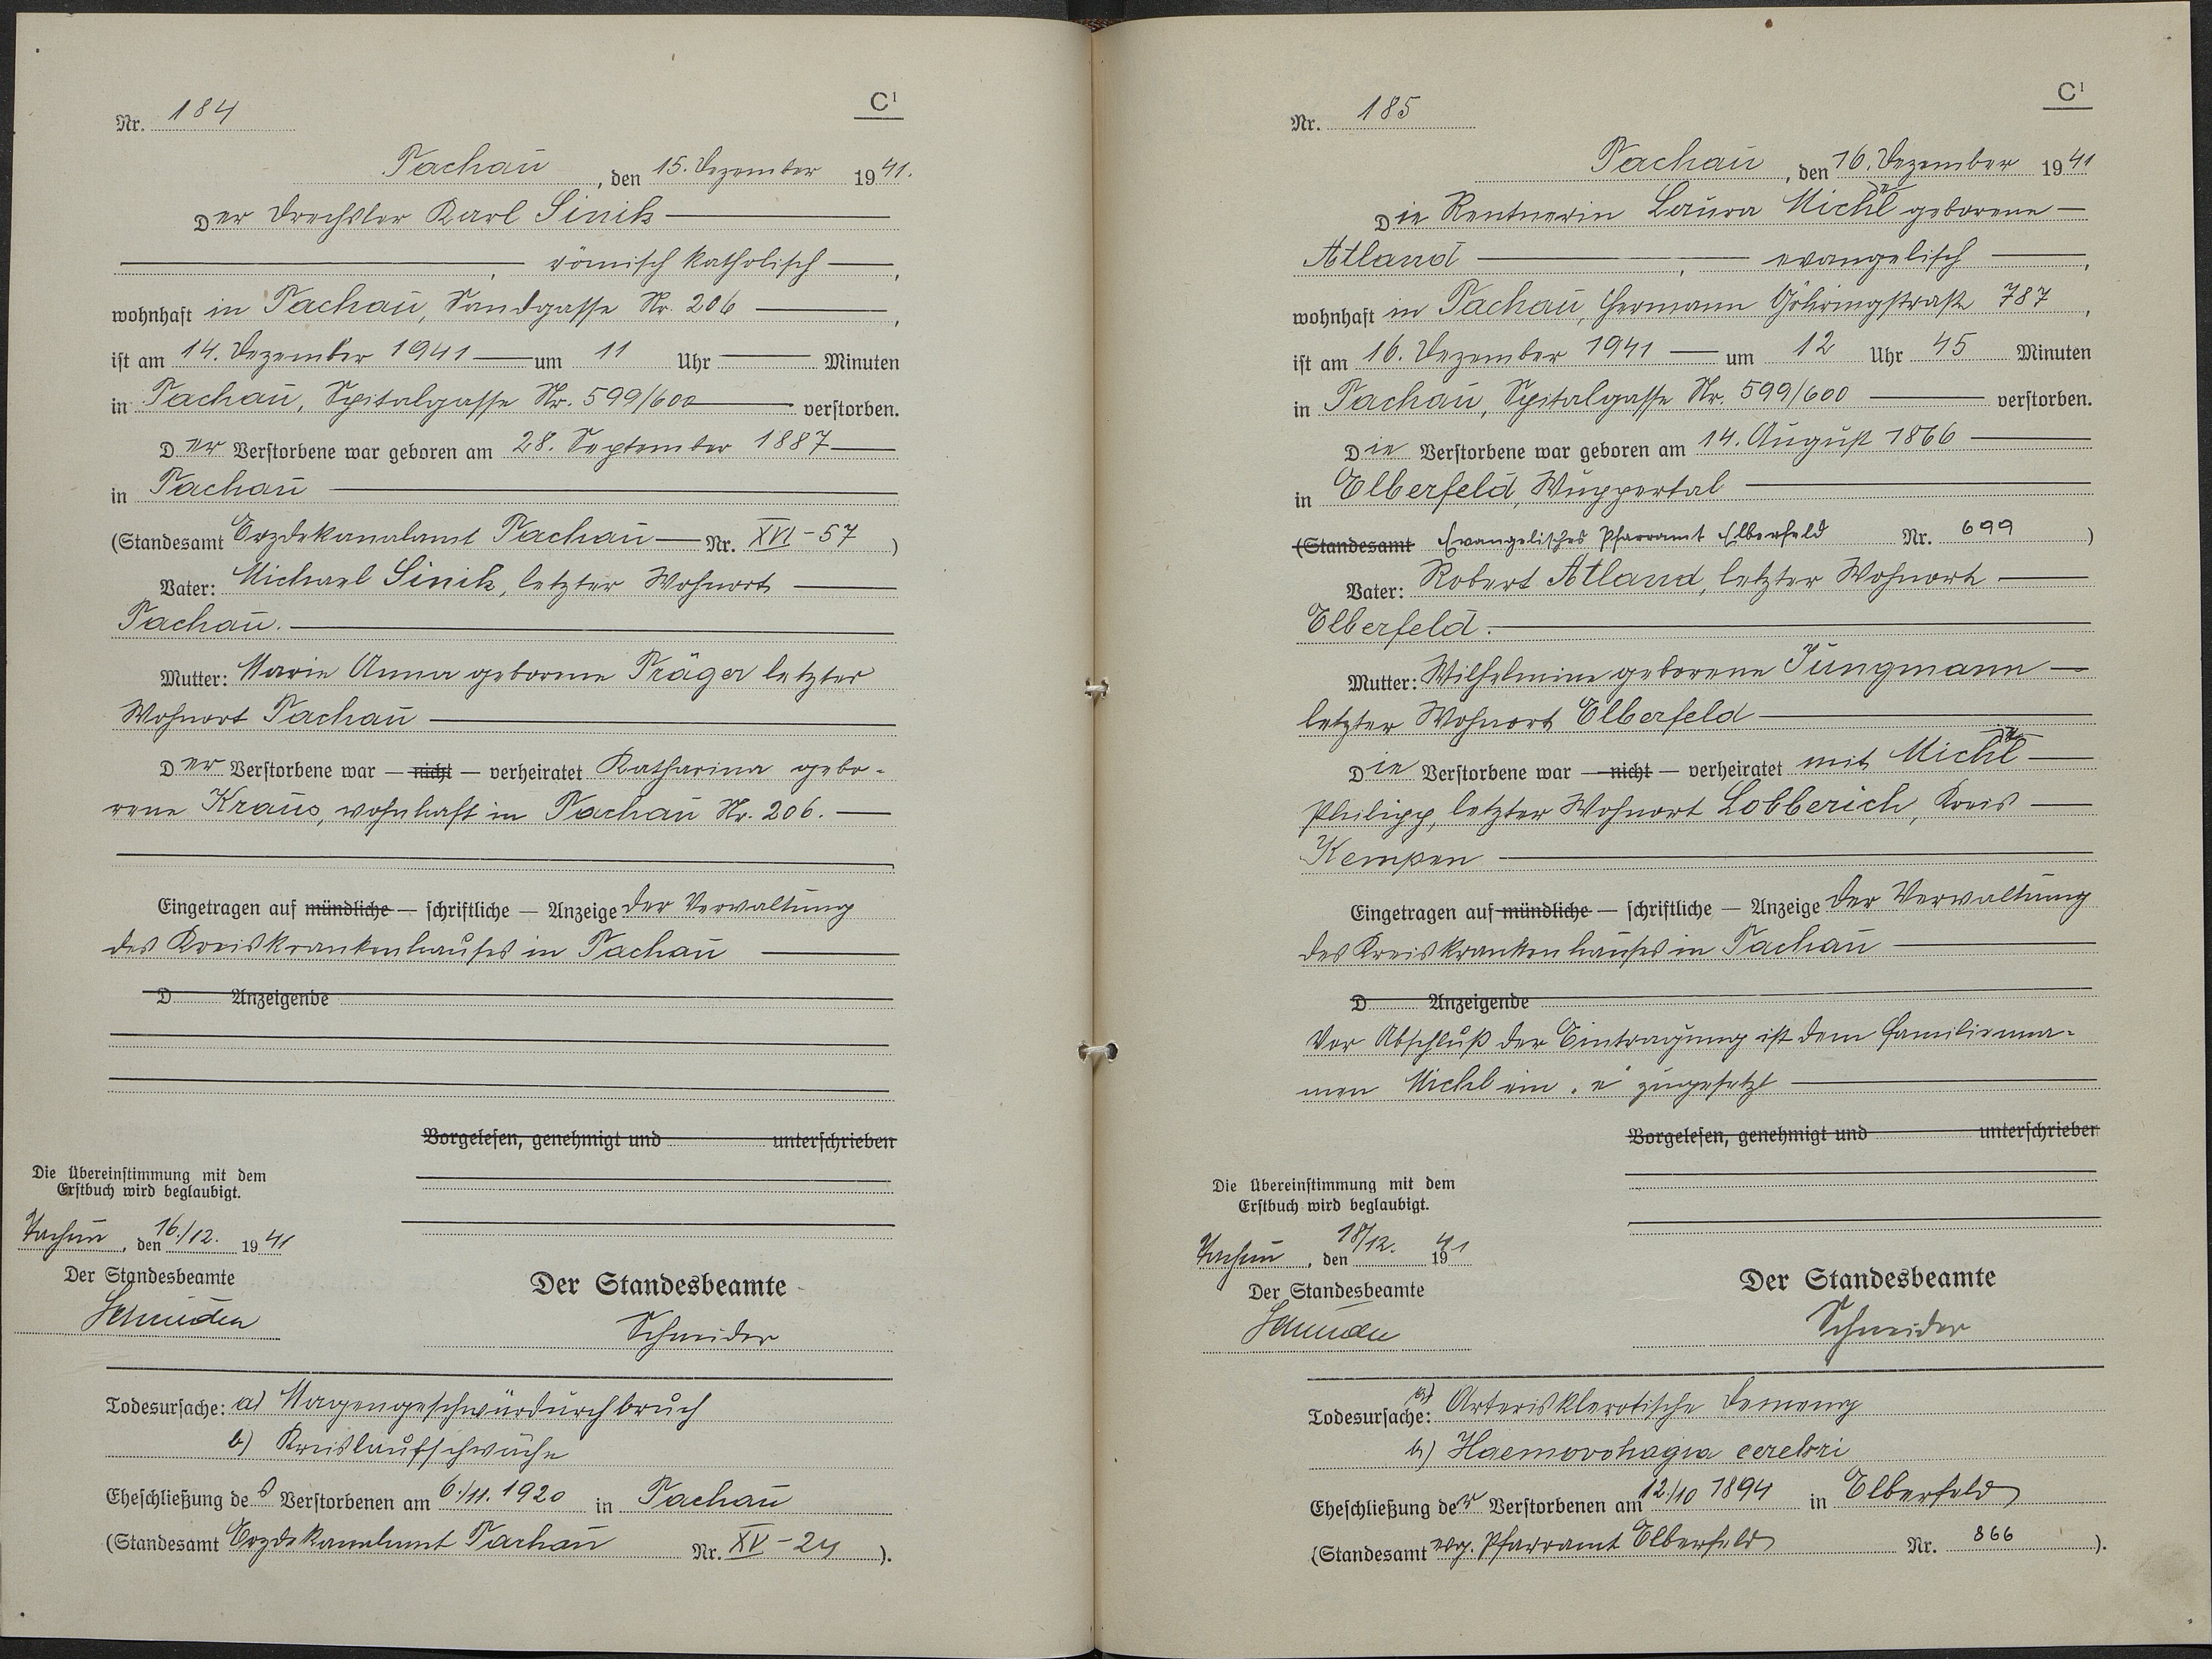 C¹
Nr. 184
Tachau, den 15. Dezember 1941.
Der Drechsler Karl Sinik
römisch katholisch,
wohnhaft in Tachau, Sandgasse Nr. 206,
ist am 14. Dezember 1941 um 11 Uhr Minuten
in Tachau, Spitalgasse Nr. 599/600 verstorben.
Der Verstorbene war geboren am 28. September 1887
in Tachau
(Standesamt Erzdekanalamt Tachau Nr. XVI-57)
Vater: Michael Sinik, letzter Wohnort
Tachau.
Mutter: Marie Anna geborene Träger letzter
Wohnort Tachau
Der Verstorbene war — nicht — verheiratet Katharina gebo-
rene Kraus, wohnhaft in Tachau Nr. 206.
Eingetragen auf mündliche — schriftliche — Anzeige der Verwaltung
des Kreiskrankenhauses in Tachau
D Anzeigende
Vorgelesen, genehmigt und unterschrieben
Die Übereinstimmung mit dem
Erstbuch wird beglaubigt.
Tachau, den 16./12. 1941
Der Standesbeamte
Schneider
Der Standesbeamte
Schneider
Todesursache: a) Magengeschwürdurchbruch
b) Kreislaufschwäche
Eheschließung des Verstorbenen am 6./11. 1920 in Tachau
(Standesamt Erzdekanalamt Tachau Nr. XV-24).
C¹
Nr. 185
Tachau, den 16. Dezember 1941
Die Rentnerin Laura Michel geborene
Atland, evangelisch,
wohnhaft in Tachau, Hermann Göhringstraße 787,
ist am 16. Dezember 1941 um 12 Uhr 45 Minuten
in Tachau, Spitalgasse Nr. 599/600 verstorben.
Die Verstorbene war geboren am 14. August 1866
in Elberfeld, Wuppertal
(Standesamt Evangelisches Pfarramt Elberfeld Nr. 699)
Vater: Robert Atland, letzter Wohnort
Elberfeld.
Mutter: Wilhelmine geborene Jungmann
letzter Wohnort Elberfeld
Die Verstorbene war — nicht — verheiratet mit Michel
Philipp, letzter Wohnort Lobberich, Kreis
Kempen
Eingetragen auf mündliche — schriftliche — Anzeige der Verwaltung
des Kreiskrankenhauses in Tachau
D Anzeigende
Vor Abschluß der Eintragung ist dem Familienna-
men Michl ein „e" zugesetzt
Vorgelesen, genehmigt und unterschrieben
Die Übereinstimmung mit dem
Erstbuch wird beglaubigt.
Tachau, den 18/12. 1941
Der Standesbeamte
Schneider
Der Standesbeamte
Schneider
Todesursache: a) Arterisklerotische Demenz
b) Haemorrhagia cerebri
Eheschließung der Verstorbenen am 12./10 1894 in Elberfeld
(Standesamt evg. Pfarramt Elberfeld Nr. 866).